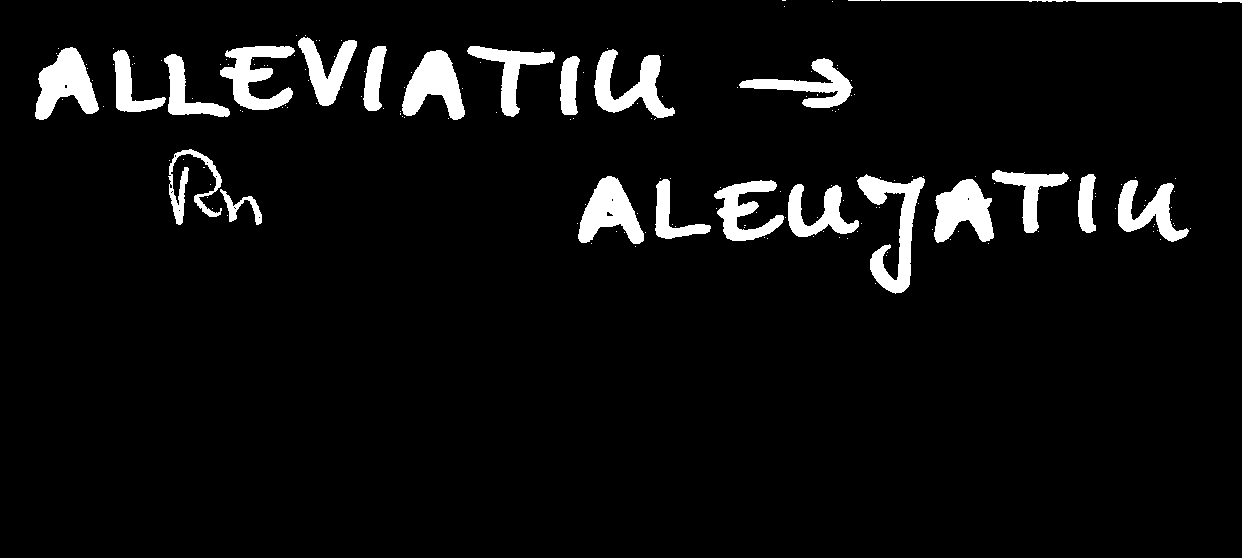 ALLEVIATIU →
Rn
ALEUJATIU